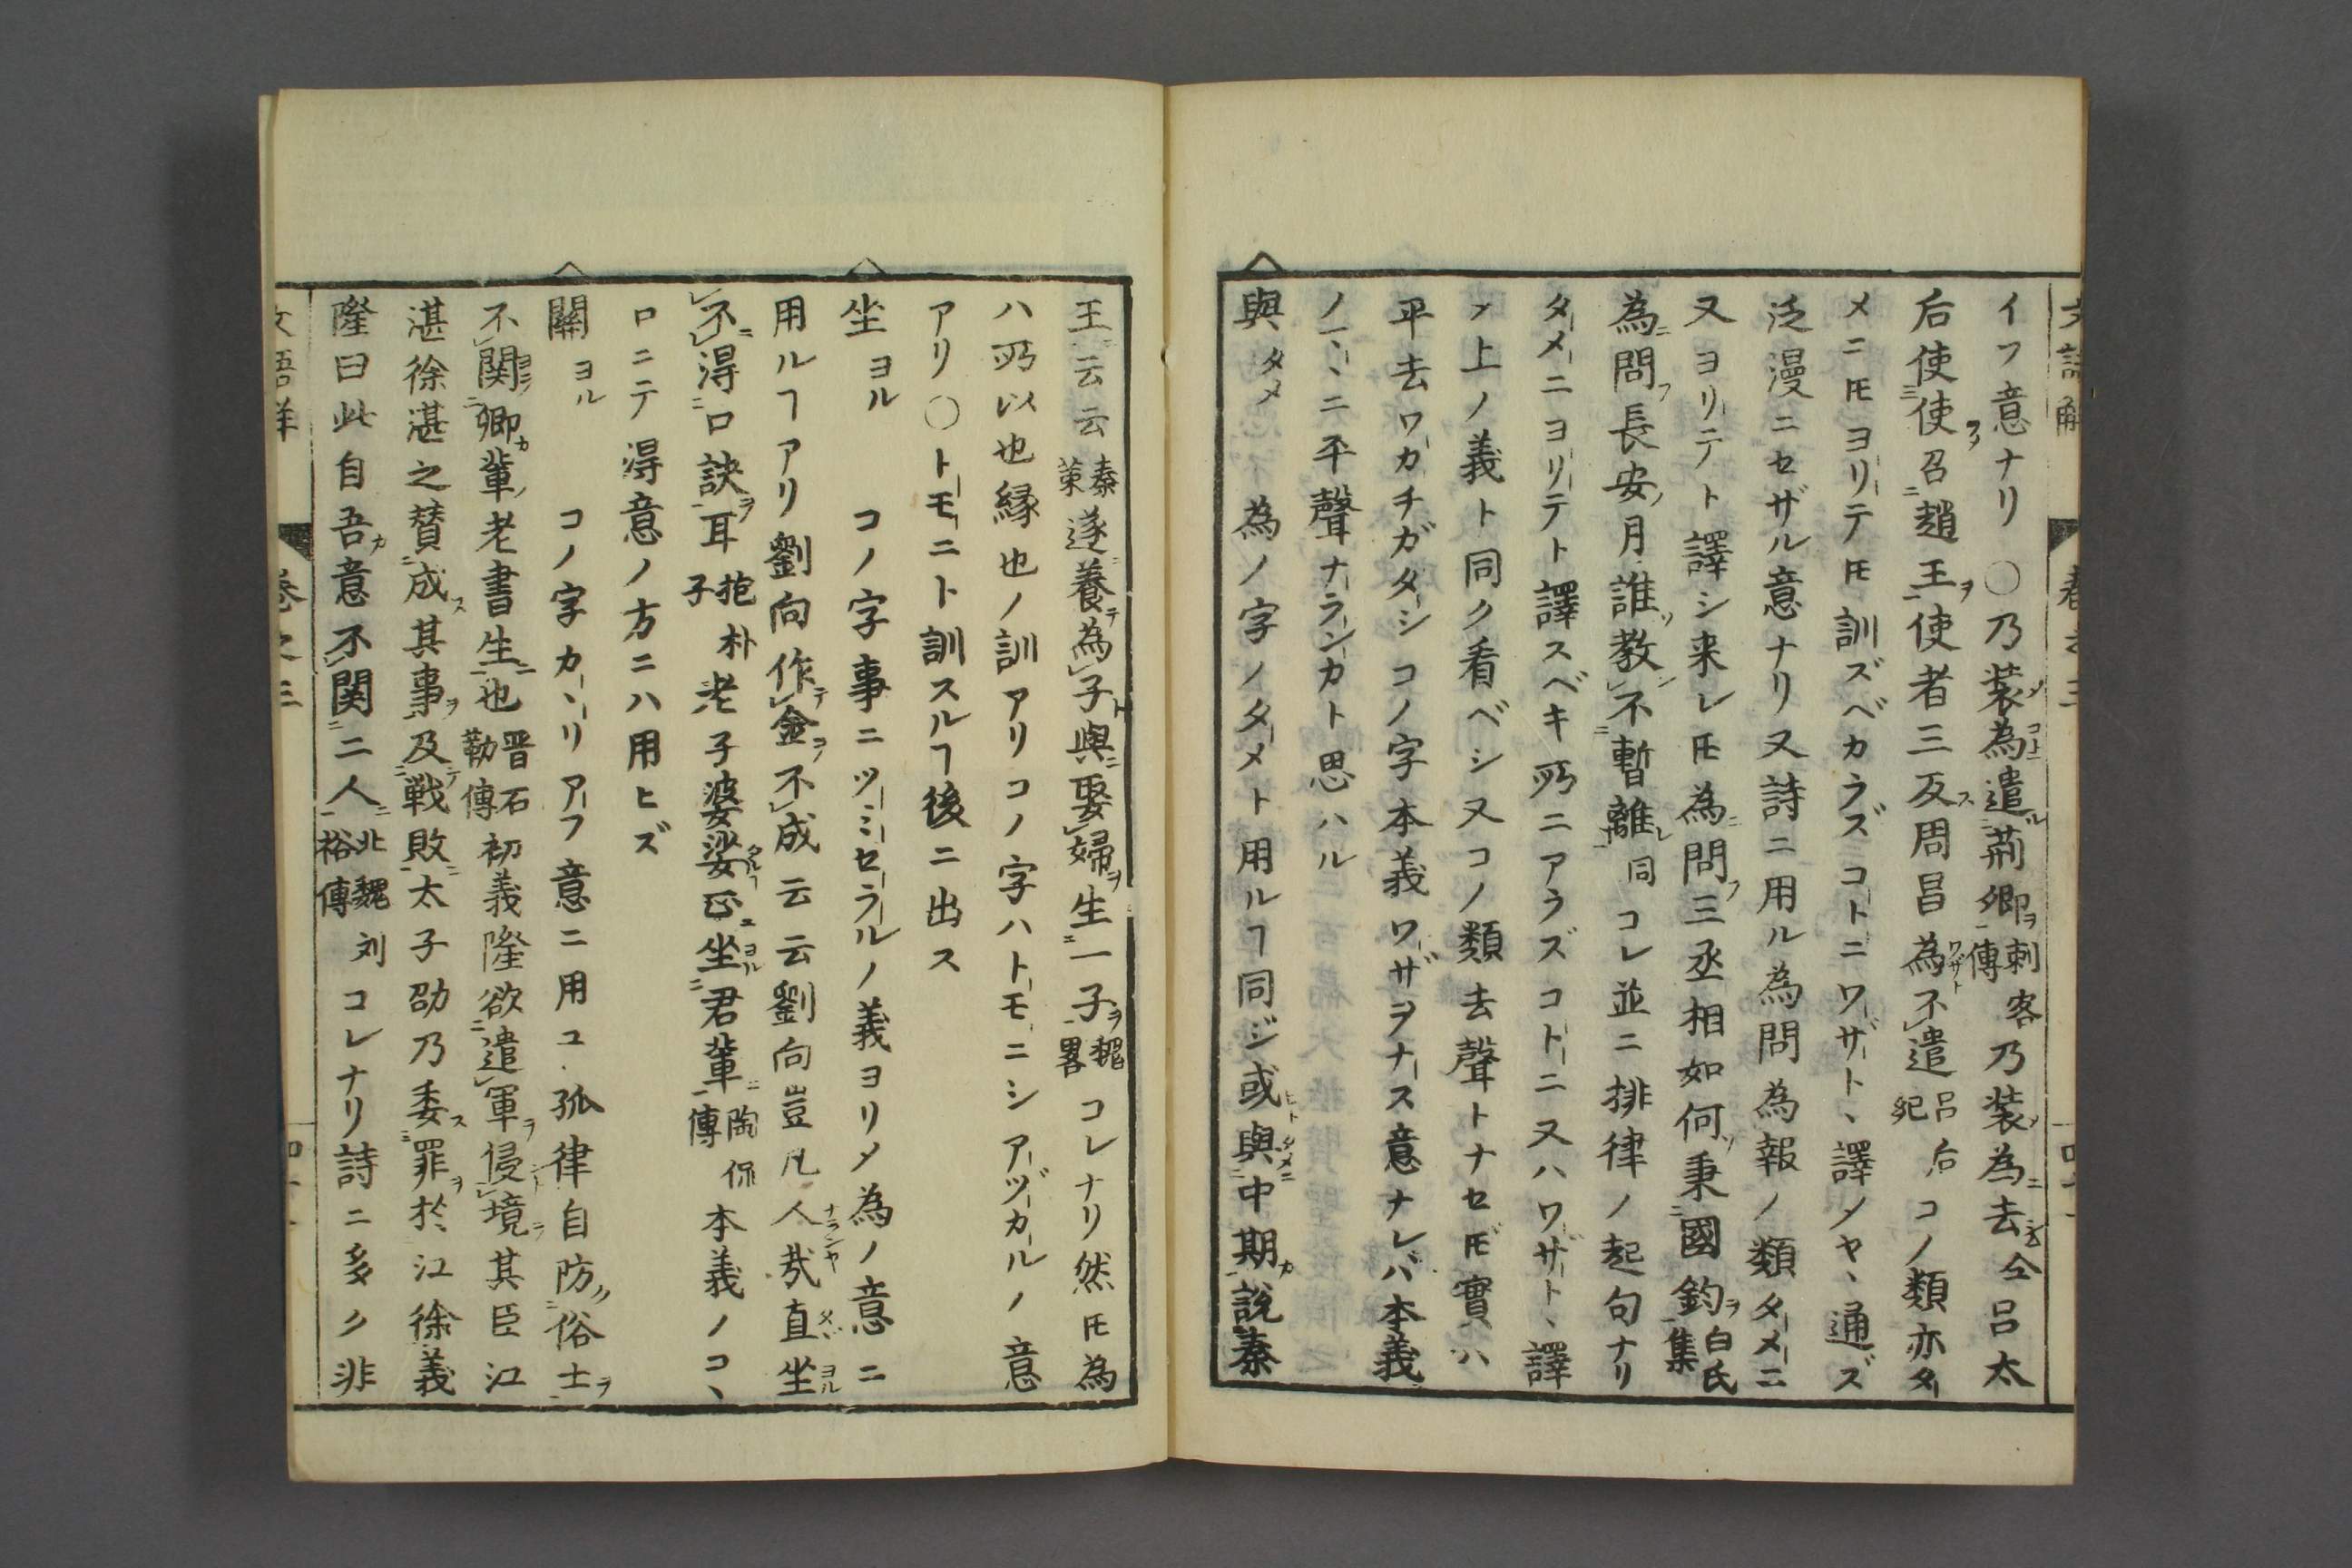 イフ意ナリ○乃装為遣荊卿刺客傳乃装為去仝呂太
后使使召趙王使者三反周昌為不遣呂后紀コノ類亦タ
メニ𪜈ヨリテ𪜈訓ズベカラズコトニワザト、譯メヤ、通ズ
泛漫ニセザル意ナリ又詩ニ用ル為問為報ノ類タメニ
又ヨリテト譯シ来レ𪜈為問三丞相如何秉國鈞白氏集
為問長安月誰教不暫離同コレ並ニ排律ノ起句ナリ
タメニヨリテト譯スベキ所ニアラズコトニ又ハワザト、譯
〆上ノ義ト同ク看ベシ又コノ類去聲トナセ𪜈實ハ
平去ワカチガタシコノ字本義ワザヲナス意ナレバ本義
ノ、ニ平聲ナランカト思ハル
與 タメ 為ノ字ノタメト用ルヿ同ジ或與中期説秦
王云云秦策遂養為子與娶婦生一子魏畧コレナリ然𪜈為
ハ所以也縁也ノ訓アリコノ字ハトモニシアヅカルノ意
アリ○トモニト訓スルヿ後ニ出ス
坐 ヨル コノ字事ニツミセラルノ義ヨリ〆為ノ意ニ
用ルヿアリ劉向作金不成云云劉向豈凡人哉直坐
不得口訣耳抱朴子老子婆娑正坐君輩陶侃傳本義ノコ、
ロニテ得意ノ方ニハ用ヒズ
關 ヨル コノ字カ、リアフ意ニ用ユ孤律自防俗士
不関卿輩老書生也晋石勒傳初義隆欲遣軍侵境其臣江
湛徐湛之賛成其事及戦敗太子劭乃委罪於江徐義
隆曰此自吾意不関二人北魏刘裕傳コレナリ詩ニ多ク非